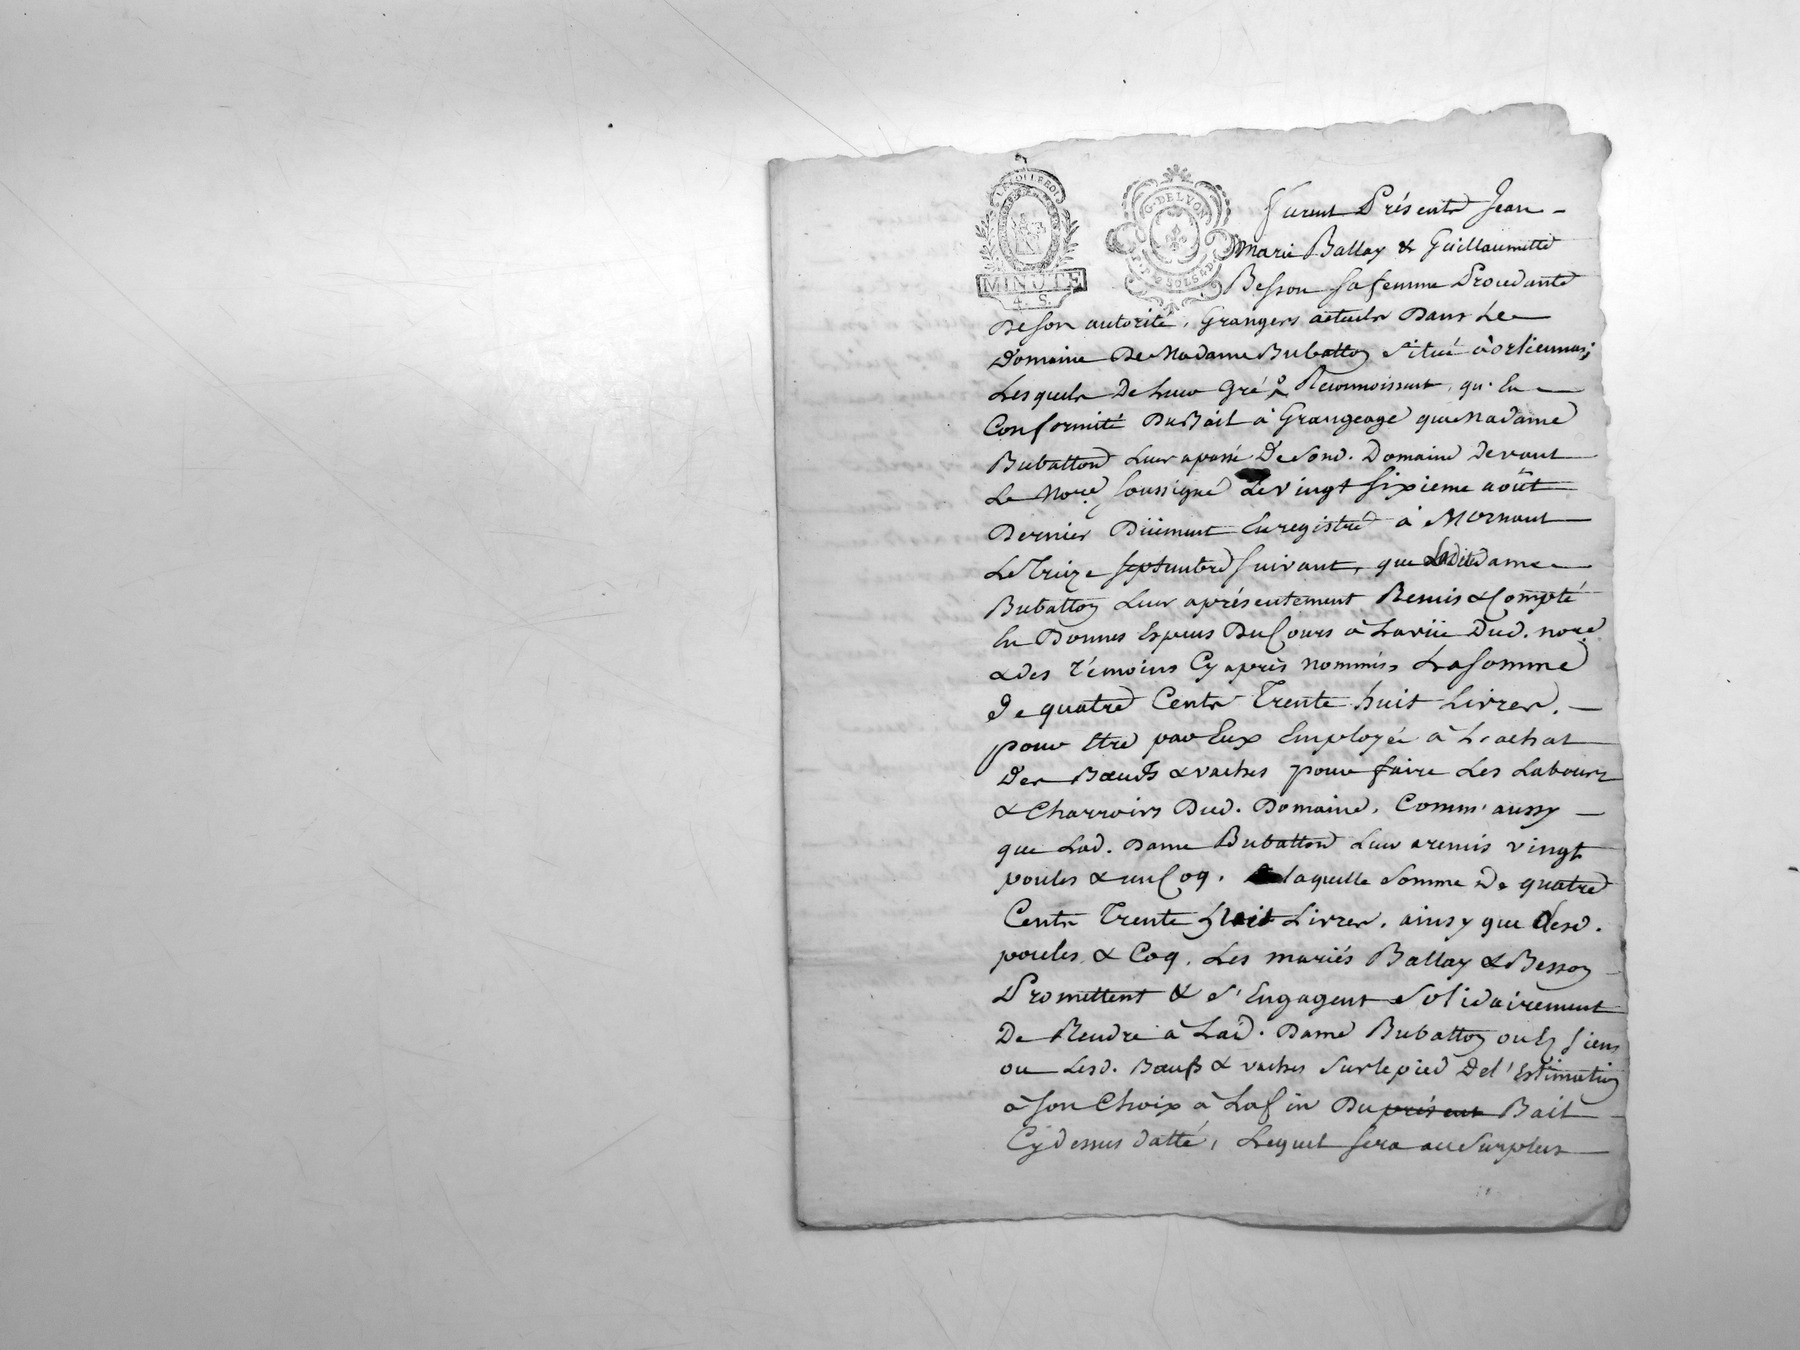 LA LOI LE ROI
MINUTE
4. S.
G. DE LYON
furent Présents Jean -
Marie Ballay & Guillaumette
Besson sa femme Procedante
De son autorité, Grangers actuels Dans Le
Domaine De Madame Bubatton situé à orliennas;
Lesquels De Leur Gré Reconnoissent, qu'En
Conformité Du Bail à Grangeage que Madame
Bubatton Leur a passé De Sond. Domaine devant
Le Nore. soussigné Le vingt sixieme août
Dernier Düement Enregistré à Mornant
Le Treize septembre suivant, que Ladite dame
Bubatton Leur a présentement Remis & Compté
En Bonnes Especes Du Cours à La vüe Dud. nore.
& des témoins Cy après nommés, La somme
De quatre Cents Trente huit Livres. -
pour Etre par Eux Employée à L'achat
Des Bœufs & vaches pour faire Les Labours
& Charroirs Dud. Domaine. Comm'aussy -
que Lad. Dame Bubatton Leur a remis vingt
poules & un Coq. laquelle somme De quatre
Cents Trente huit Livres, ainsy que desd.
poules & Coq, Les mariés Ballay & Besson
Promettent & s'Engagent solidairement
De Rendre à Lad. Dame Bubatton ou Es siens
ou Lesd. Bœufs & vaches sur le pied De l'Estimation
à son Choix à La fin Du présent Bail
Cy dessus datté, Lequel sera au surplus